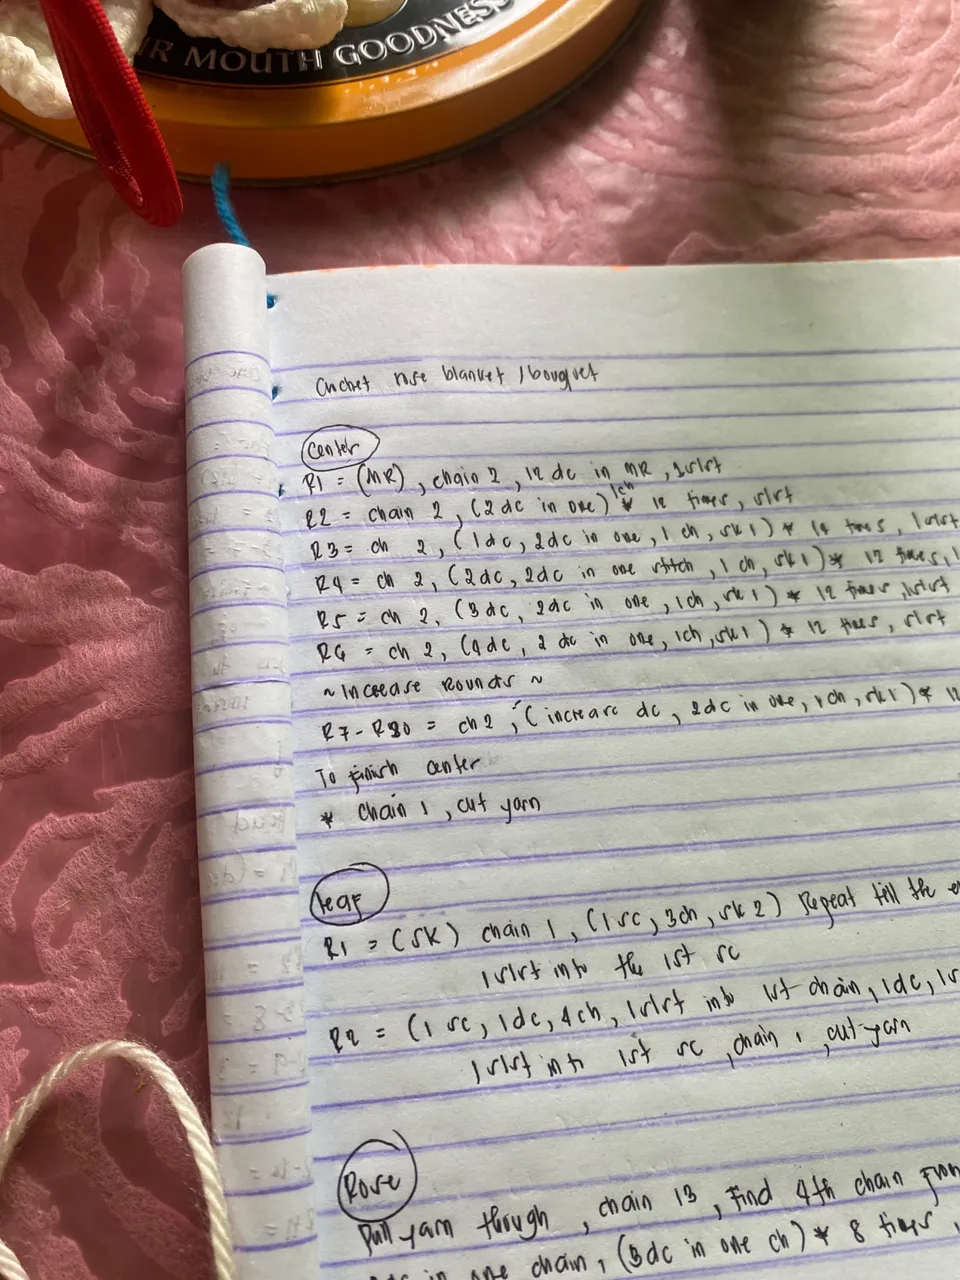 R MOUTH GOODNESS
Crochet rose blanket / bouquet
Center
R1 = (MR), chain 2, 12 dc in MR, 1slst
R2 = chain 2, (2 dc in one) 1ch * 12 times, slst
R3 = ch 2, (1dc, 2dc in one, 1 ch, sk1) * 12 times, 1slst
R4 = ch 2, (2dc, 2dc in one stitch, 1 ch, sk1) * 12 times, 1
R5 = ch 2, (3dc, 2dc in one, 1ch, sk1) * 12 times, 1slst
R6 = ch 2, (4dc, 2 dc in one, 1ch, sk1) * 12 times, slst
~ Increase Rounds ~
R7 - R30 = ch2, (increase dc, 2dc in one, 1ch, sk1) * 12
To finish center
* chain 1, cut yarn
Leaf
R1 = (SK) chain 1, (1sc, 3ch, sk2) Repeat till the
1slst into the 1st sc
R2 = (1 sc, 1dc, 4ch, 1slst into 1st chain, 1dc, 1s
1slst into 1st sc, chain 1, cut yarn
Rose
Pull yarn through, chain 13, Find 4th chain from
in one chain, (3dc in one ch) * 8 times,